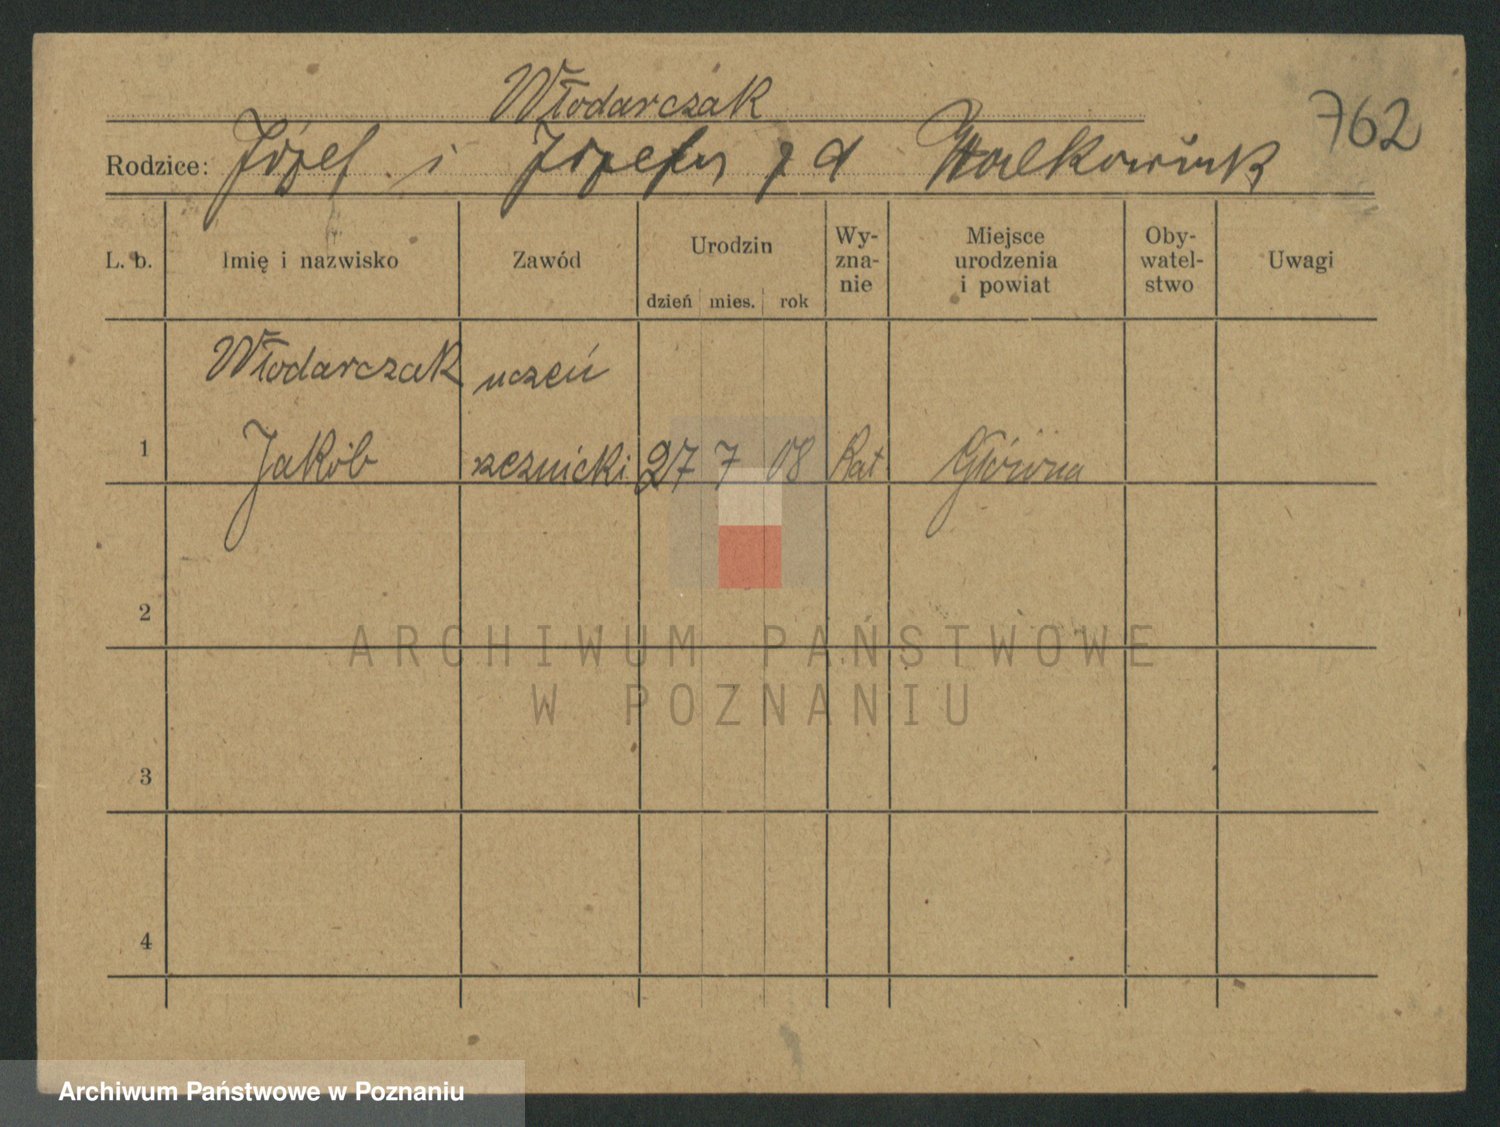 Włodarczak
762
Rodzice: Józef i Józefa z d Walkowiak
L. b. Imię i nazwisko Zawód Urodzin dzień mies. rok Wy-zna-nie Miejsce urodzenia i powiat Oby-watel-stwo Uwagi
Włodarczak uczeń
1 Jakób rzeznicki 27 7 08 Kat Główna
2
3
4
ARCHIWUM PAŃSTWOWE
W POZNANIU
Archiwum Państwowe w Poznaniu